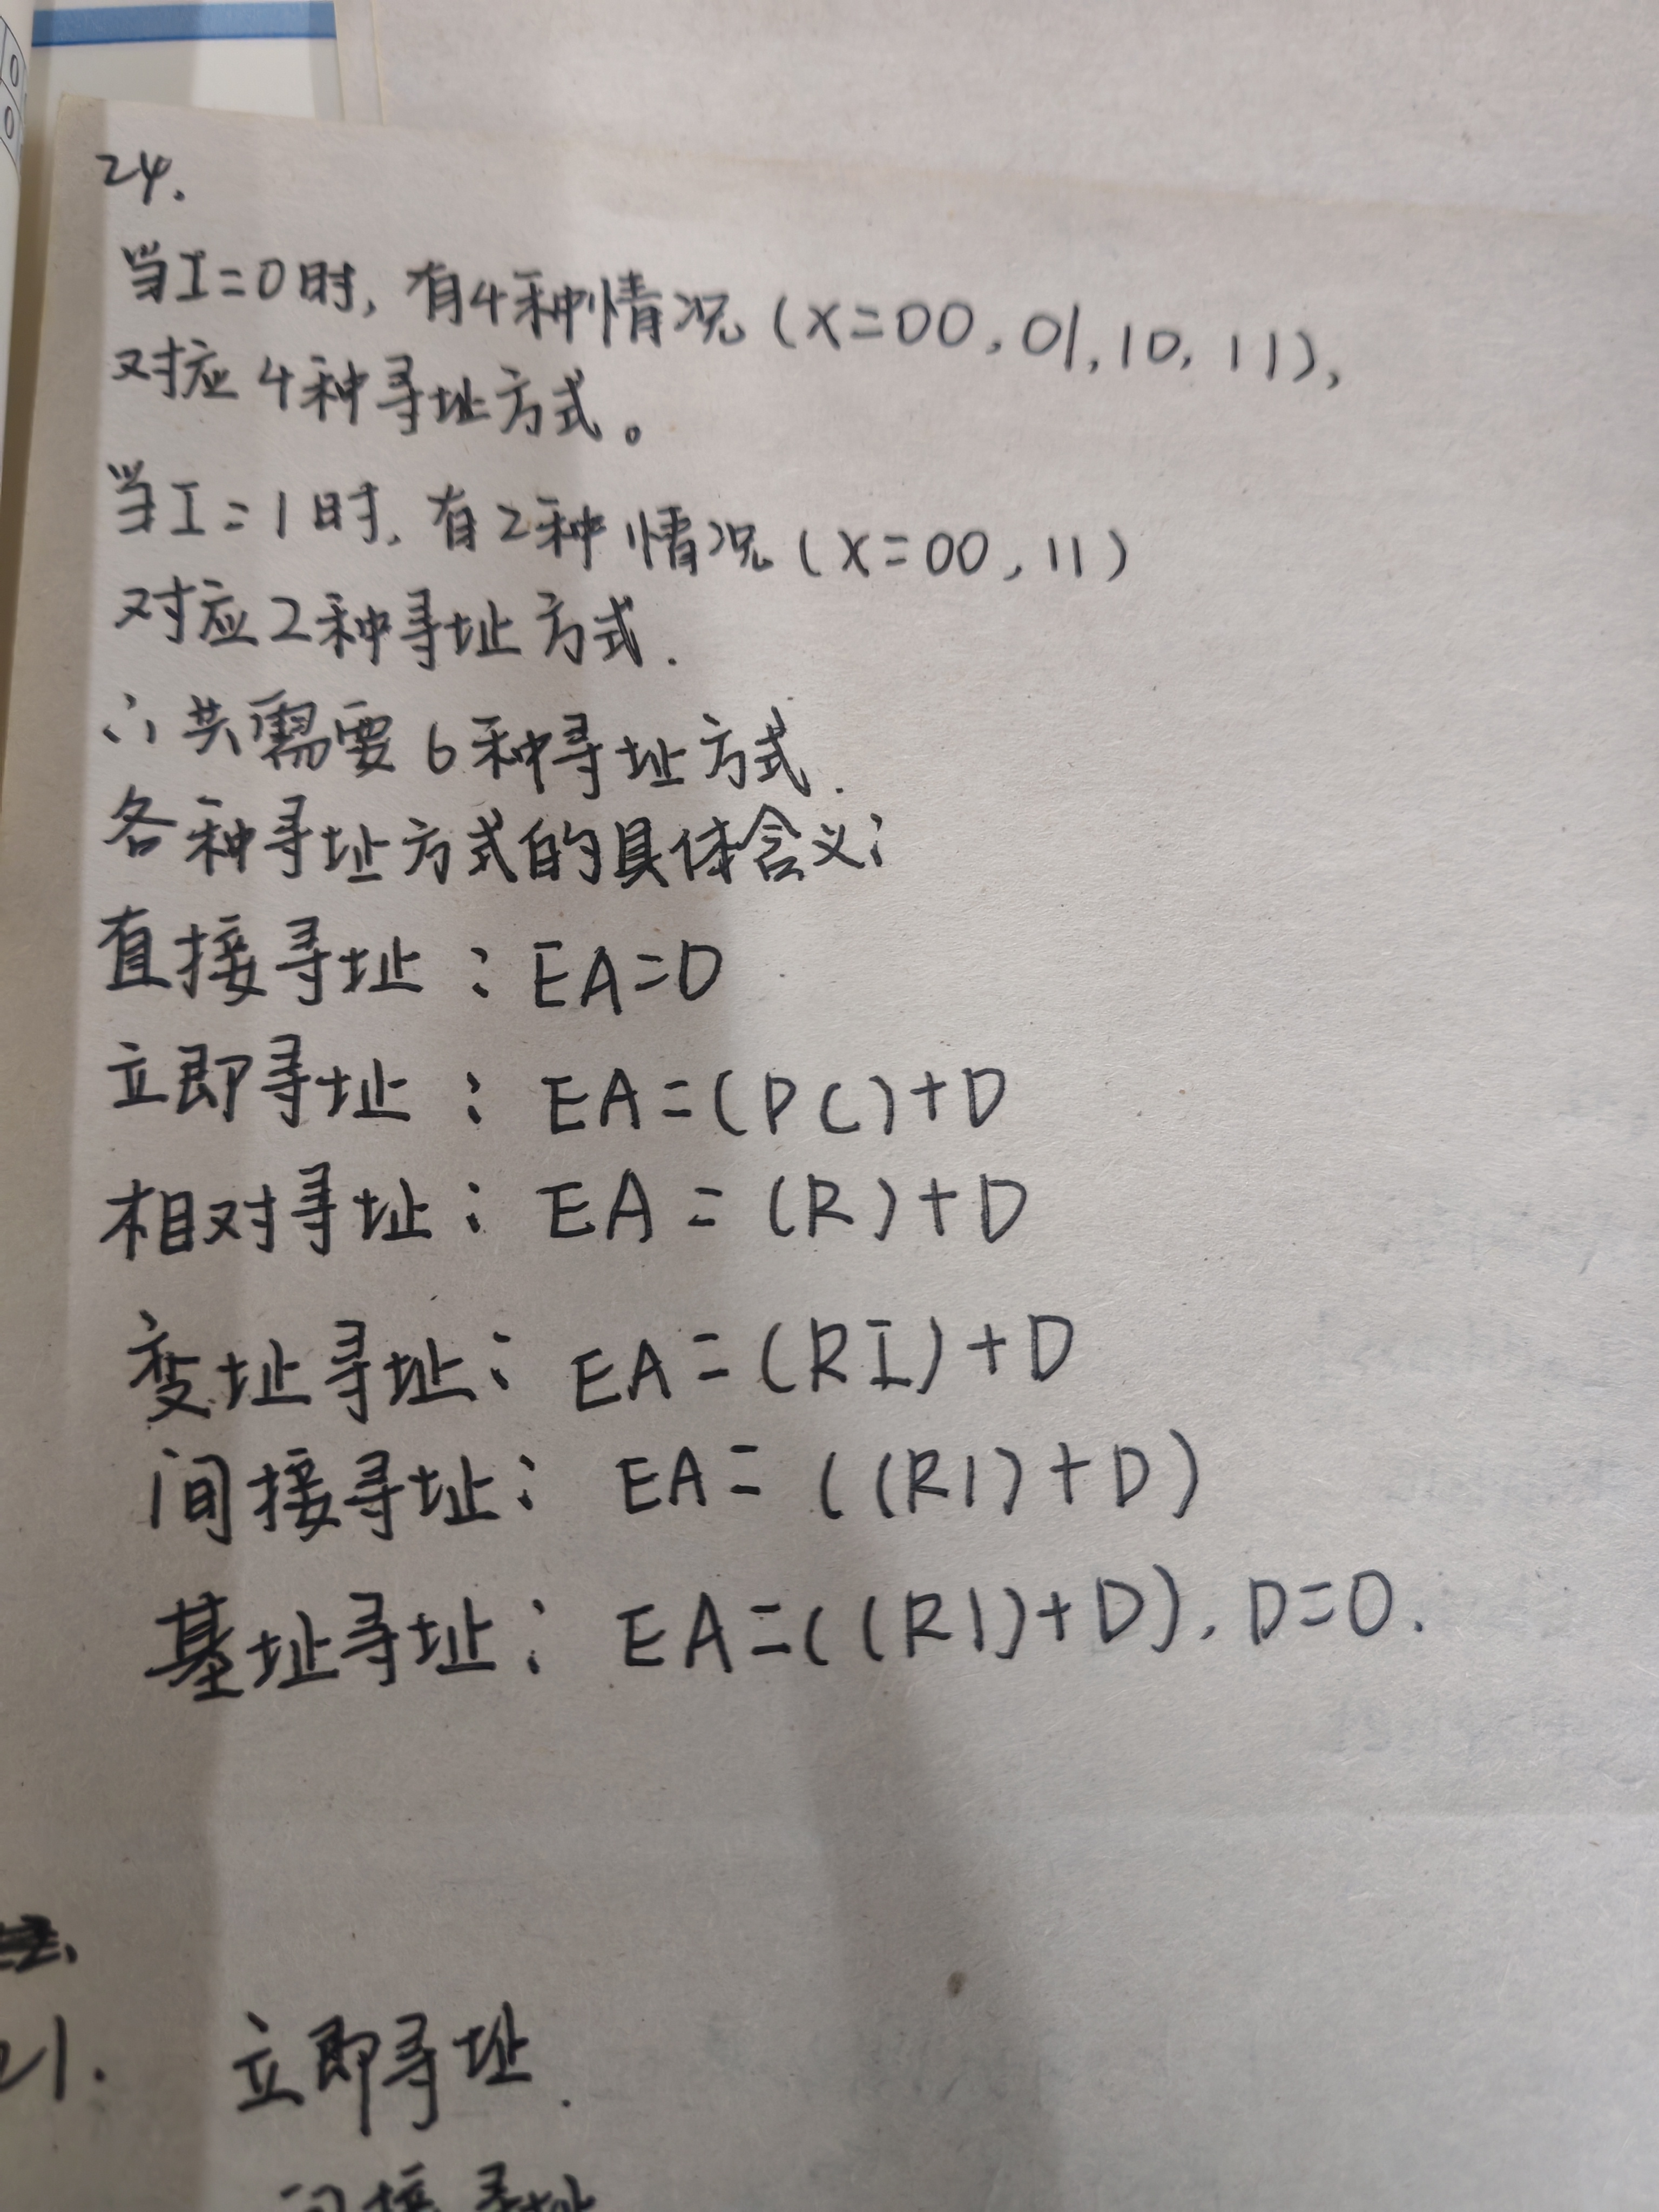 0
0
24.
当I=0时,有4种情况(X=00,01,10,11),
对应4种寻址方式。
当I=1时,有2种情况(X=00,11)
对应2种寻址方式.
∴共需要6种寻址方式.
各种寻址方式的具体含义:
直接寻址:EA=D
立即寻址:EA=(PC)+D
相对寻址:EA=(R)+D
变址寻址:EA=(RI)+D
间接寻址:EA=((R1)+D)
基址寻址:EA=((R1)+D),D=0.
21. 立即寻址.
间接寻址